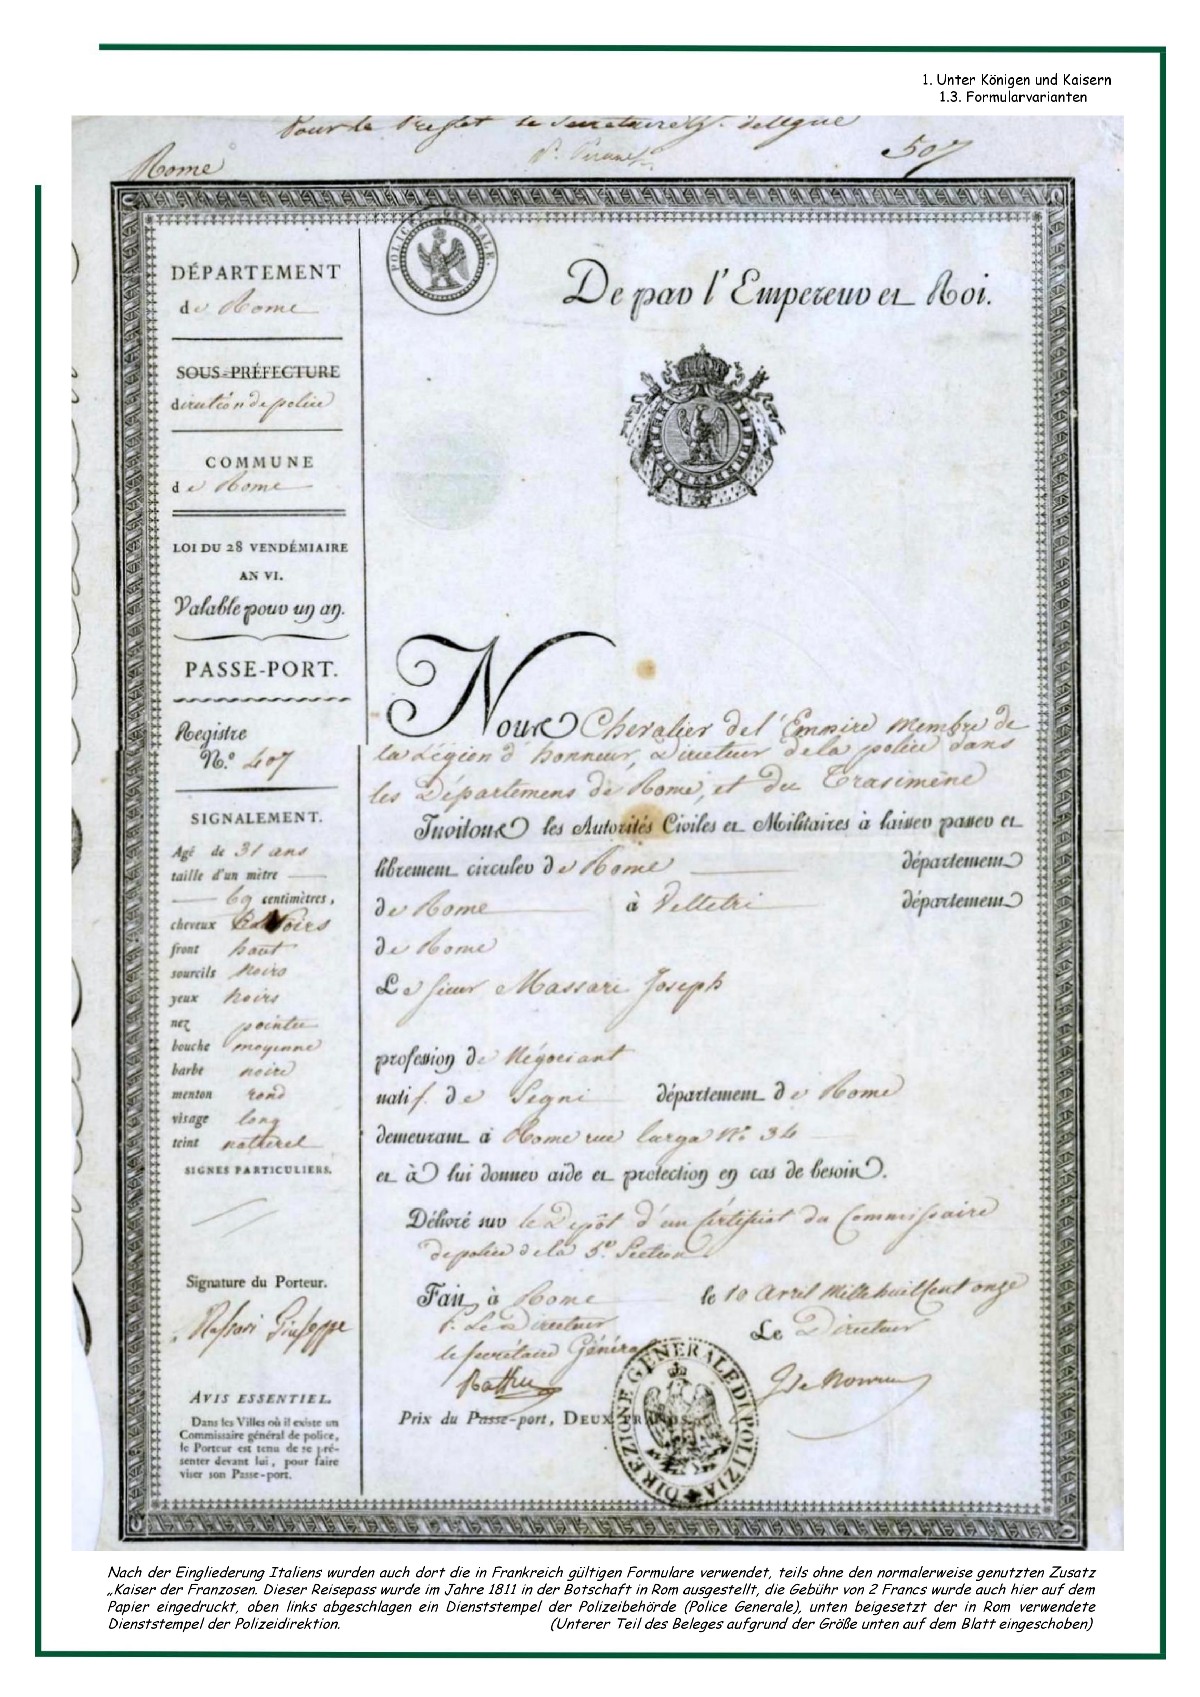 1. Unter Königen und Kaisern
1.3. Formularvarianten
Pour le Préfet le Secrétaire
Rome
507
POLICE GÉNÉRALE.
DÉPARTEMENT
de Rome
SOUS-PRÉFECTURE
direction de police
COMMUNE
de Rome
LOI DU 28 VENDÉMIAIRE
AN VI.
Valable pour un an.
PASSE-PORT.
Registre
N.º 407
SIGNALEMENT.
Agé de 31 ans
taille d'un mètre
69 centimètres,
cheveux Noirs
front haut
sourcils noirs
yeux noirs
nez pointu
bouche moyenne
barbe noire
menton rond
visage long
teint naturel
SIGNES PARTICULIERS.
Signature du Porteur.
Massari Giuseppe
AVIS ESSENTIEL.
Dans les Villes où il existe un
Commissaire général de police,
le Porteur est tenu de se pré-
senter devant lui, pour faire
viser son Passe-port.
De par l'Empereur et Roi.
Nous Chevalier de l'Empire Membre de
la Légion d'honneur, Directeur de la police dans
les Départemens de Rome, et du Trasimène
Invitons les Autorités Civiles et Militaires à laisser passer et
librement circuler de Rome département
de Rome à Velletri département
de Rome
Le sieur Massari Joseph
profession de Négociant
natif de Segni département de Rome
demeurant à Rome rue larga Nº 34
et à lui donner aide et protection en cas de besoin.
Délivré sur le Dépôt d'un Certificat du Commissaire
de police de la 5e Section
Fait à Rome le 10 Avril Mille huit cent onze
P. Le Directeur Le Directeur
le Secrétaire Général
Prix du Passe-port, DEUX FRANCS.
DIREZIONE GENERALE DI POLIZIA
Nach der Eingliederung Italiens wurden auch dort die in Frankreich gültigen Formulare verwendet, teils ohne den normalerweise genutzten Zusatz
„Kaiser der Franzosen. Dieser Reisepass wurde im Jahre 1811 in der Botschaft in Rom ausgestellt, die Gebühr von 2 Francs wurde auch hier auf dem
Papier eingedruckt, oben links abgeschlagen ein Dienststempel der Polizeibehörde (Police Generale), unten beigesetzt der in Rom verwendete
Dienststempel der Polizeidirektion. (Unterer Teil des Beleges aufgrund der Größe unten auf dem Blatt eingeschoben)